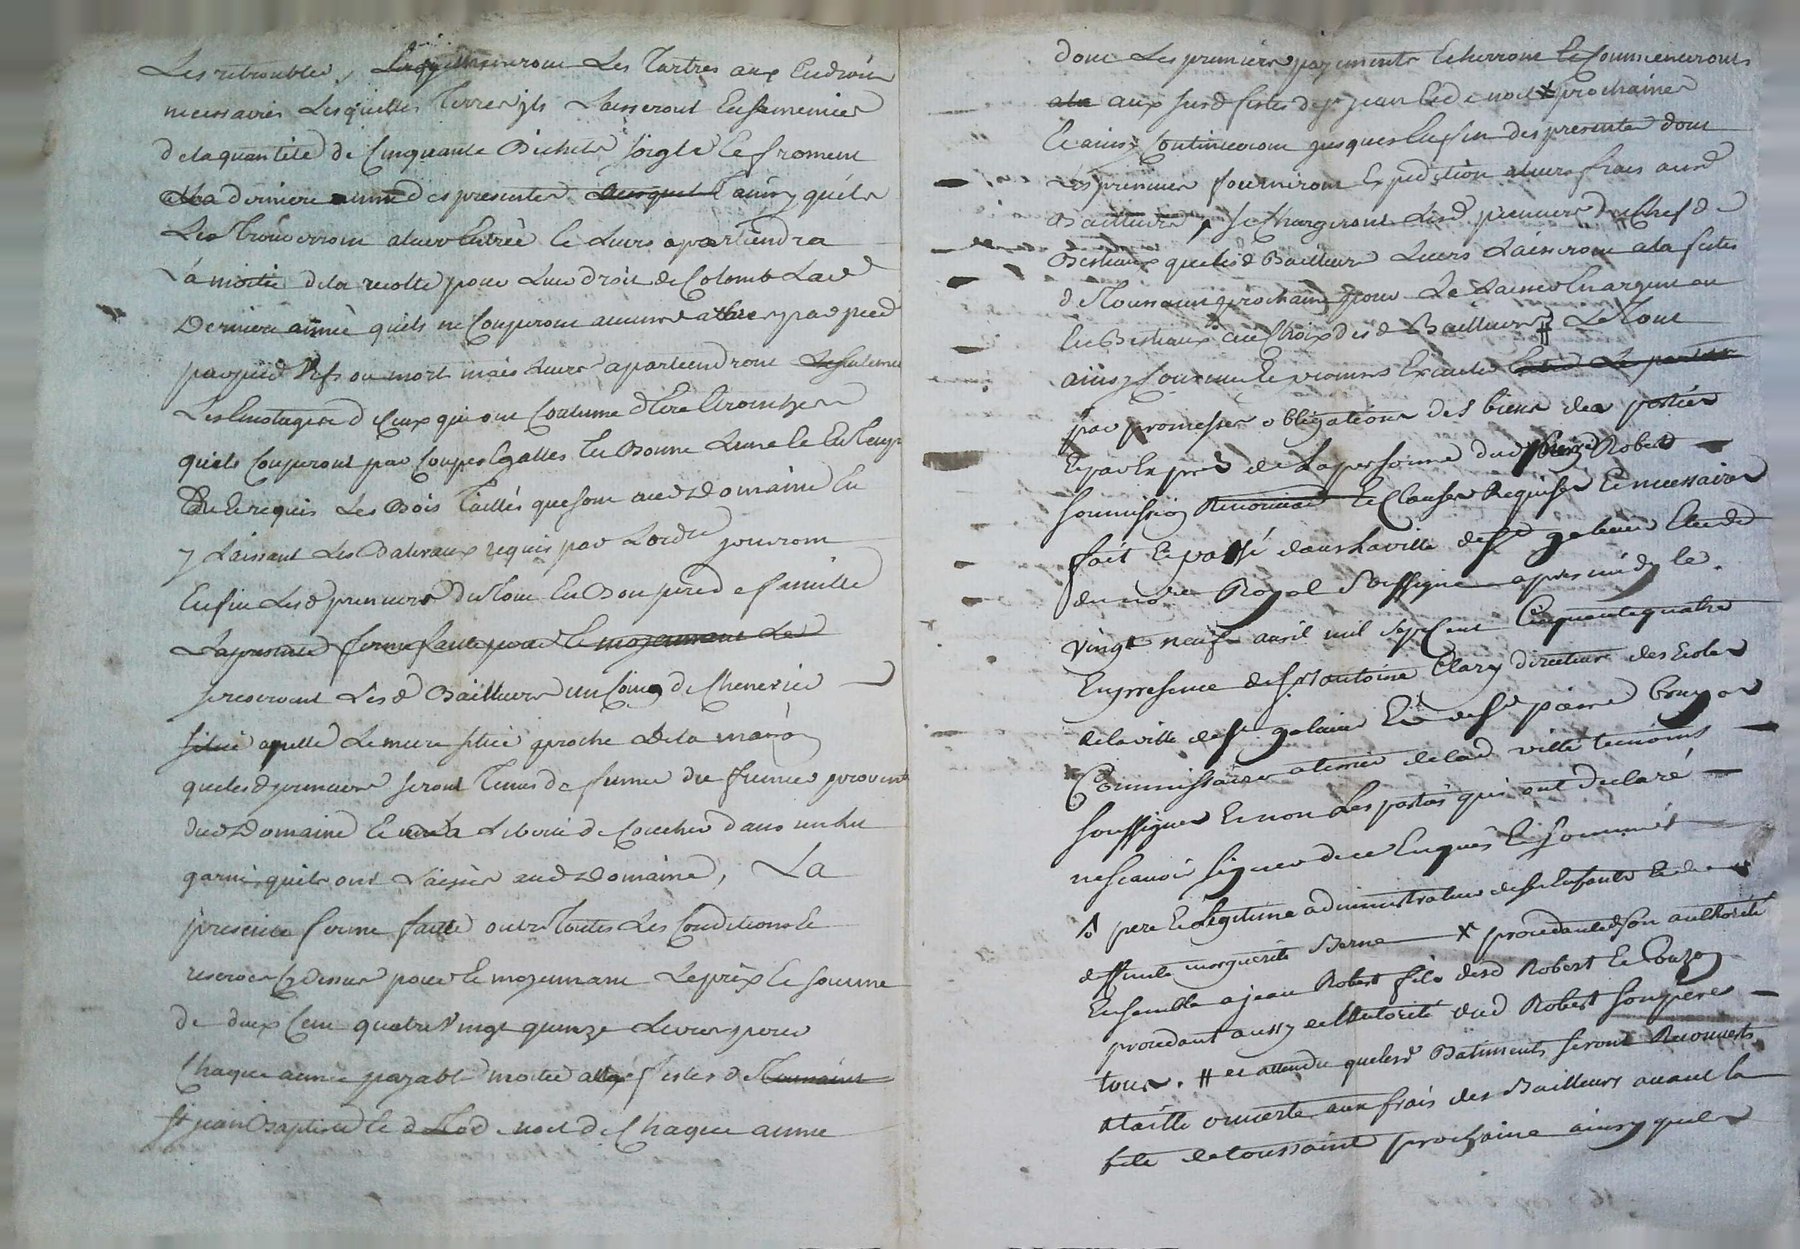 Les retroubles, Les Tartres aux Endroits
necessaires Lesquelles Terres ils Laisseront Ensemencées
de la quantité de Cinquante Bichets soigle Et froment
a La derniere année des presentes Et ainsy qu'ils
Les Trouveront a Leur Entrée Et Leurs apartiendra
La moitié de la recolte pour Leur droit de Colomb Lad
Derniere année quils ne Couperont aucuns arbres par pied
par pied Vifs ou mort mais Leurs apartiendront
Les Emotages d Ceux qui ont Coutume dEtre Etrompés
quils Couperont par Coupes Egalles En Bonne Lune Et En Temps
Du Et requis Les Bois Taillés que sont aud Domaine En
y Laissant Les Balivaux requis par Lordre jouiront
Enfin Lesd preneurs du Tout En Bon pere de famille
La presente ferme faite pour Et moyennant Le
se reservent Lesd Bailleurs un Coing de Chenevier
situé apellé Le mure situé proche de la maison
que lesd preneurs seront Tenus de fumer du fumier provenant
dud Domaine Et La Liberté de Coucher dans un Lit
garni quils ont Laissés aud Domaine, La
presente ferme faite outre Toutes Les Conditions Et
reserves Cy Dessus pour Et moyennant Le prix Et somme
de deux Cent quatre Vingt quinze Livres pour
Chaque année payable moitié a festes de Toussaint
St jean Baptiste Et de Noel de Chaque année
dont Les premiers payements Echerront Et Commenceront
a La aux susd festes de St jean Et de noel X prochaines
Et ainsy Continueront jusques En fin des presentes dont
Les preneurs fourniront Expedition a Leurs frais auxd
Bailleurs, se Chargeront Lesd preneurs du Chef de
Bestiaux que Lesd Bailleurs Leurs Laisseront a la feste
de Toussaint prochaine pour Le Laisser En argent ou
En Bestiaux au Choix desd Bailleurs # Le Tout
ainsy Convenu Et promis Executer
par promesses obligations des biens des parties
Et par Exprès de La personne dud Robert
soumission Renonciat Et Clauses Requises Et necessaires
fait Et passé dans La ville de St galmier Etude
du no.re Royal Soussigné apres midy le
vingt neuf avril mil sept Cent Cinquante quatre
En presence de Sr antoine Clary directeur des Ecoles
de la ville de St galmier Et de Sr pierre
Commissaire a terrier de lad ville temoins
soussignés Et non Les parties qui ont declaré
ne scavoir signer de ce Enquis Et sommés
pere Et Legitime administrateur de ses Enfants Et de
deffunte marguerite Berne X procedante de son authorité
Ensemble a jean Robert fils desd Robert Et
procedant aussy de Lautorité dud Robert son pere
tous. # et attendu que lesd Batiments seront Recouverts
a taille ouverte aux frais des Bailleurs avant la
fete de toussaint prochaine ainsy quils